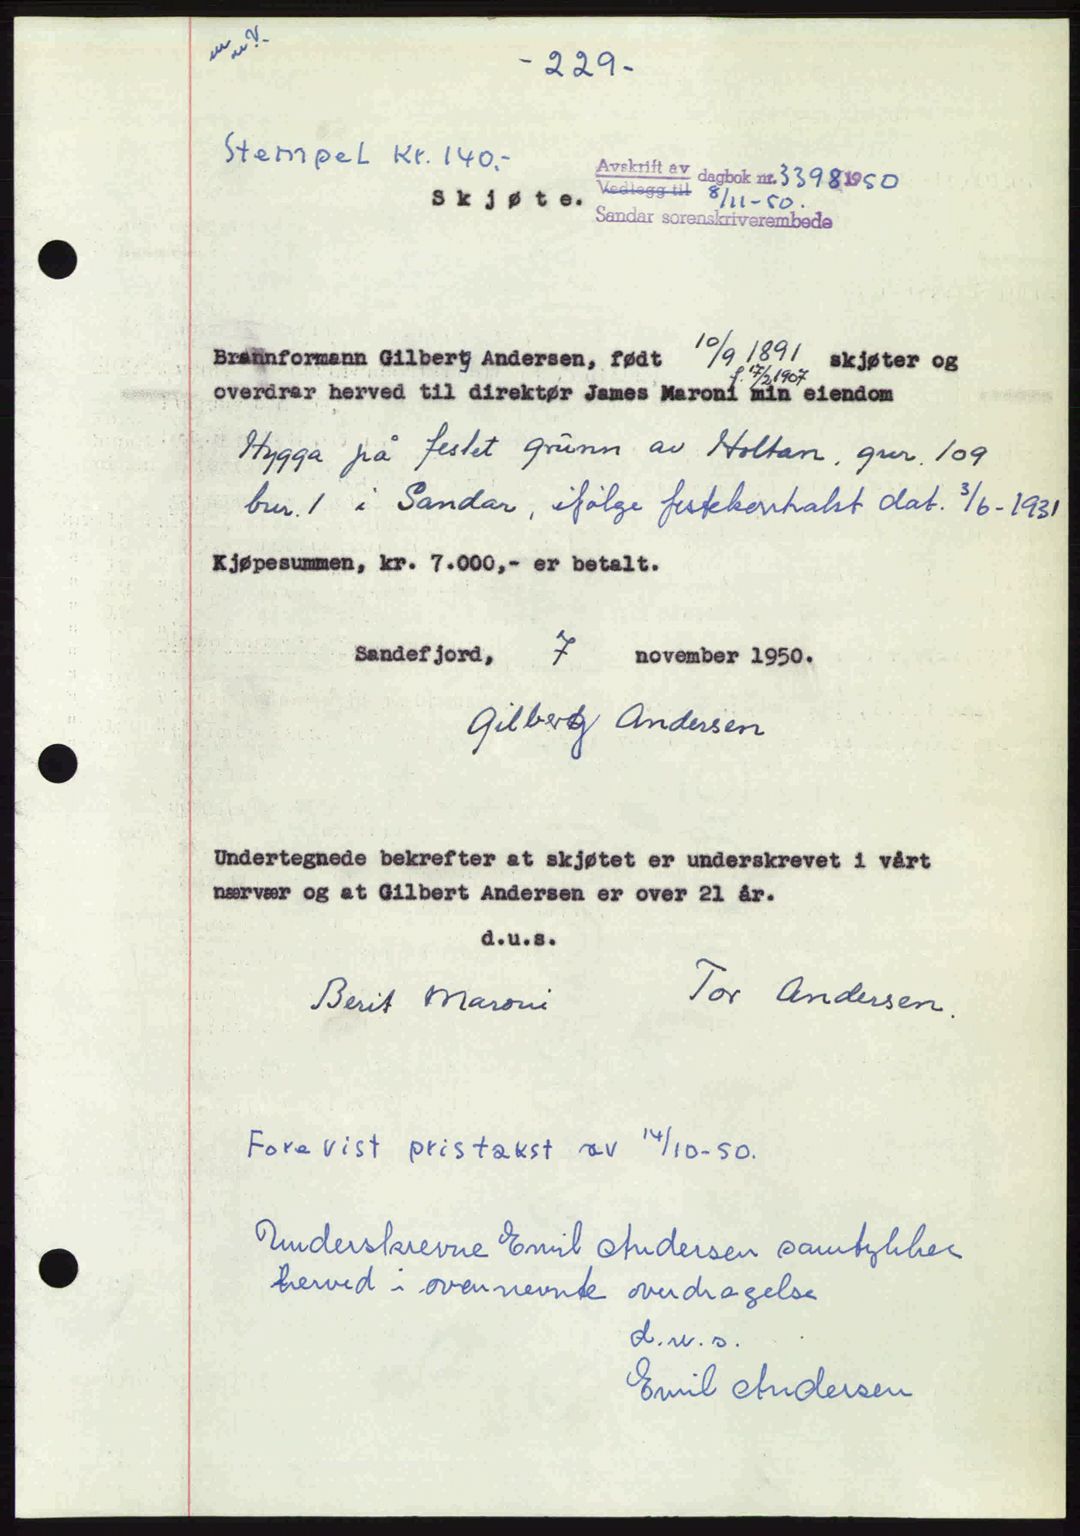 - 229 -
Stempel Kr. 140.-
Avskrift av dagbok nr. 3398 1950
Vedlegg til 8/11-50.
Skjøte.
Sandar sorenskriverembede
Brannformann Gilbert Andersen, født 10/9 1891 skjøter og
f. 17/2 1907
overdrar herved til direktør James Maroni min eiendom
Hygga på festet grunn av Holtan, gnr. 109
bnr. 1 i Sandar, ifølge festekontrakt dat. 3/6-1931
Kjøpesummen, kr. 7.000,- er betalt.
Sandefjord, 7 november 1950.
Gilbert Andersen
Undertegnede bekrefter at skjøtet er underskrevet i vårt
nærvær og at Gilbert Andersen er over 21 år.
d.u.s.
Berit Maroni Tor Andersen.
Forevist pristakst av 14/10-50.
Underskrevne Emil Andersen samtykker
herved i ovennevnte overdragelse
d.u.s.
Emil Andersen